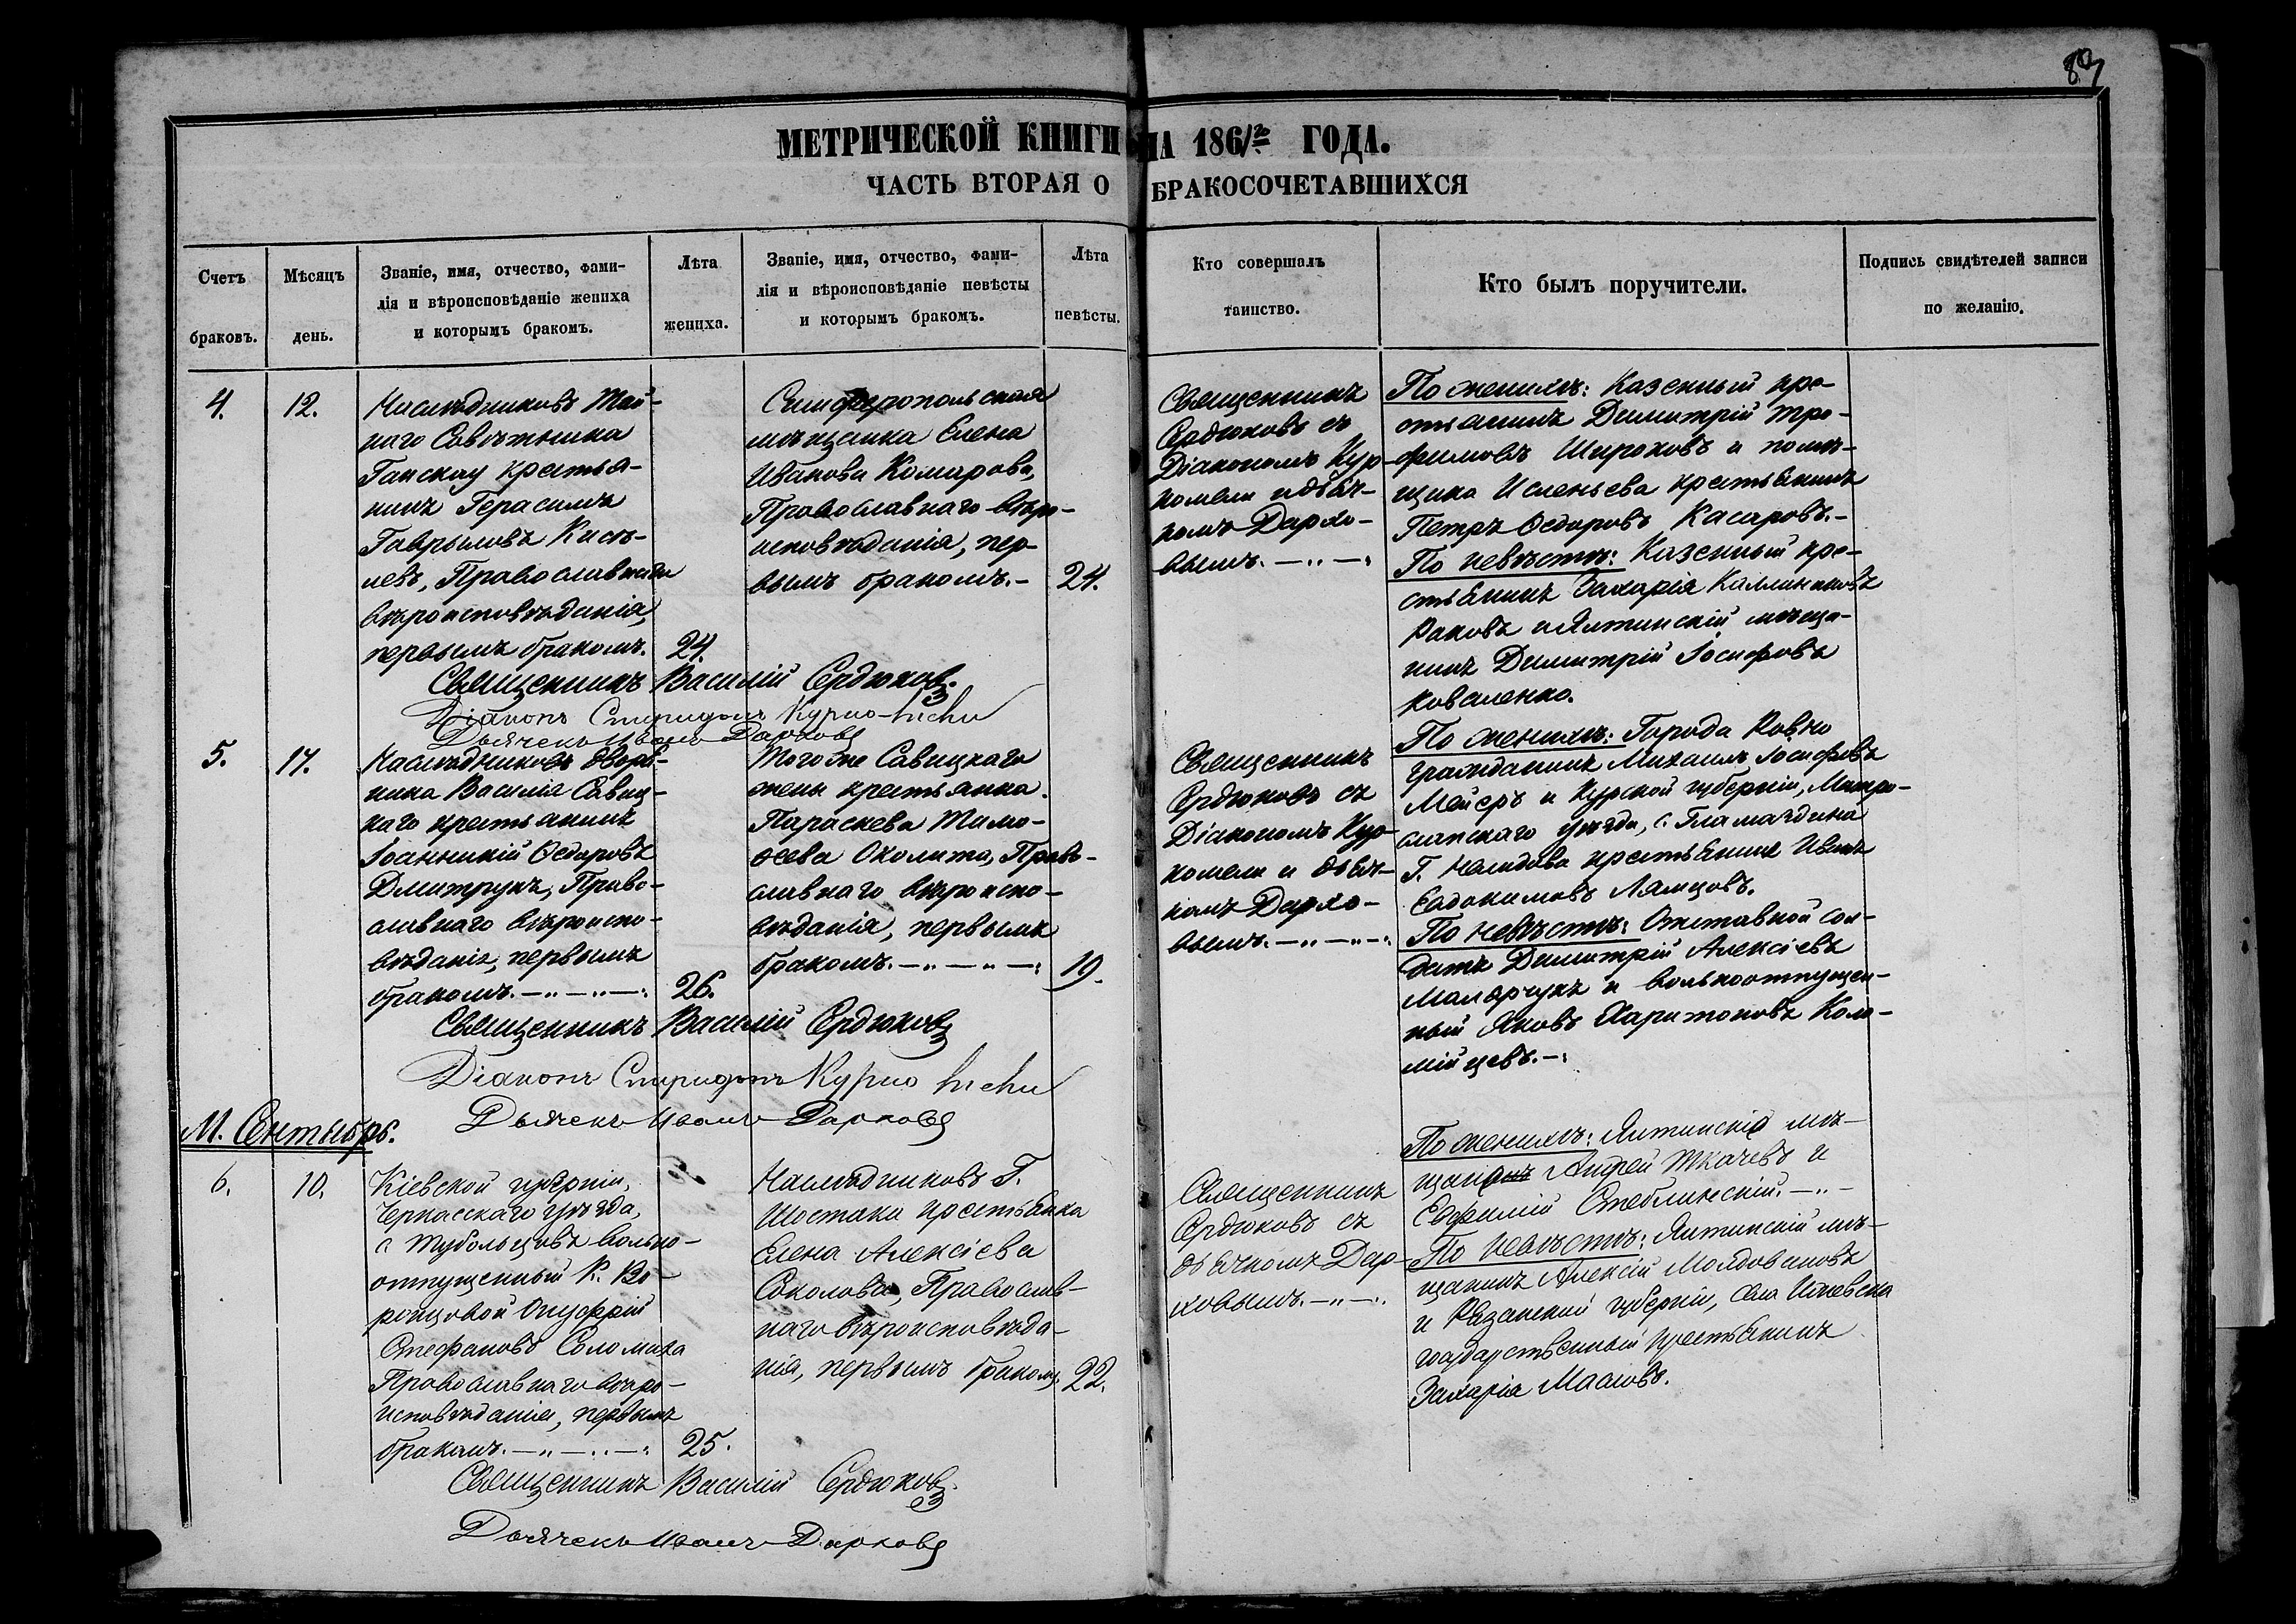 МЕТРИЧЕСКОЙ КНИГИ НА 1861го ГОДА.
ЧАСТЬ ВТОРАЯ О БРАКОСОЧЕТАВШИХСЯ
Счетъ
браковъ.
Мѣсяцъ
день.
Званіе, имя, отчество, фами-
лія и вѣроисповѣданіе жениха
и которымъ бракомъ.
Лѣта
жениха.
Званіе, имя, отчество, фами-
лія и вѣроисповѣданіе невѣсты
и которымъ бракомъ.
Лѣта
невѣсты.
Кто совершалъ
таинство.
Кто былъ поручители.
Подпись свидѣтелей записи
по желанію.
4.
12.
Наслѣдниковъ Тай-
наго Совѣтника
крестья-
нинъ Герасимъ
Гавриловъ Кисѣ-
левъ, Православнаго
вѣроисповѣданія,
первымъ бракомъ.
24.
Симферопольская
мѣщанка Елена
Иванова Комарова,
Православнаго вѣро-
исповѣданія, пер-
вымъ бракомъ.-
24.
Священникъ
Сердюковъ съ
Діакономъ Кур-
комели и дьяч-
комъ Дарко-
вымъ.
По женихѣ: Казенный кре-
стьянинъ Димитрій Тро-
фимовъ Широковъ и помѣ-
щика Исленьева крестьянинъ
Петръ Ѳедоровъ Касаровъ.-
По невѣстѣ: Казенный кре-
стьянинъ Захарія Каллиниковъ
Раковъ и Ялтинскій мѣща-
нинъ Димитрій Іосифовъ
Коваленко.
Священникъ Василій Сердюковъ.
Діаконъ Спиридонъ
Дьячекъ Иванъ Дарковъ
5.
17.
Наслѣдниковъ Дворя-
нина Василія Савиц-
каго крестьянинъ
Іоанникій Ѳедоровъ
Дмитрукъ, Право-
славнаго вѣроиспо-
вѣданія, первымъ
бракомъ.
26.
Того же Савицкаго
жены крестьянка
Параскева Тимо-
ѳеева Околита, Право-
славнаго вѣроиспо-
вѣданія, первымъ
бракомъ.
19.
Священникъ
Сердюковъ съ
Діакономъ Кур-
комели и дьяч-
комъ Дарко-
вымъ.
По женихѣ: Города Ровно
гражданинъ Михаилъ Іосифовъ
Мейеръ и Курской губерніи,
уѣзда, с.
Г. Нелидова крестьянинъ Иванъ
Евдокимовъ Лямцовъ.
По невѣстѣ: Отставной сол-
датъ Димитрій Алексіевъ
Маларчукъ и вольноотпущен-
ный Яковъ Харитоновъ Коло-
мійцевъ.
Священникъ Василій Сердюковъ
Діаконъ Спиридонъ
Дьячекъ Иванъ Дарковъ
М. Сентябрь.
6.
10.
Кіевской губерніи,
Черкасскаго уѣзда,
с. Тубольцовъ вольно-
отпущенный К. Во-
ронцовой Онуфрій
Стефановъ Соломаха
Православнаго вѣро-
исповѣданія, первымъ
бракомъ.
25.
Наслѣдниковъ Г.
Шостака крестьянка
Елена Алексіева
Соколова, Православ-
наго вѣроисповѣда-
нія, первымъ бракомъ.
22.
Священникъ
Сердюковъ съ
дьячкомъ Дар-
ковымъ.
По женихѣ: Ялтинскіе мѣ-
щане Андрей Ткачевъ и
Евфимій Стеблинскій.
По невѣстѣ: Ялтинскій мѣ-
щанинъ Алексій Молдовановъ
и Рязанской губерніи, села
государственный крестьянинъ
Захарія Масловъ.
Священникъ Василій Сердюковъ.
Дьячекъ Иванъ Дарковъ